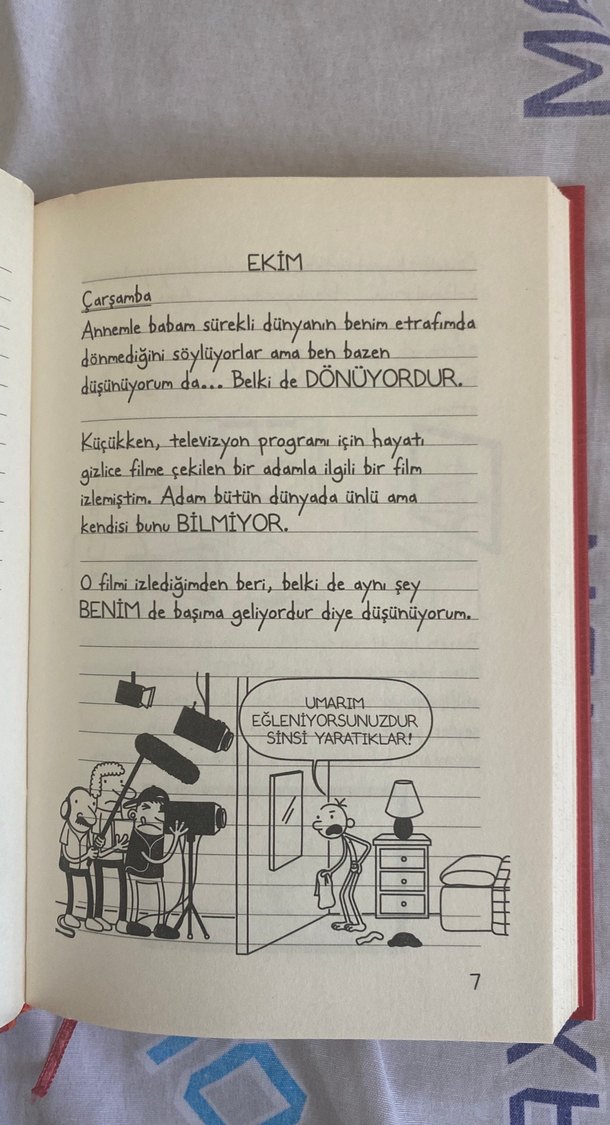 EKİM
Çarşamba
Annemle babam sürekli dünyanın benim etrafımda
dönmediğini söylüyorlar ama ben bazen
düşünüyorum da... Belki de DÖNÜYORDUR.
Küçükken, televizyon programı için hayatı
gizlice filme çekilen bir adamla ilgili bir film
izlemiştim. Adam bütün dünyada ünlü ama
kendisi bunu BİLMİYOR.
O filmi izlediğimden beri, belki de aynı şey
BENİM de başıma geliyordur diye düşünüyorum.
UMARIM
EĞLENİYORSUNUZDUR
SİNSİ YARATIKLAR!
7